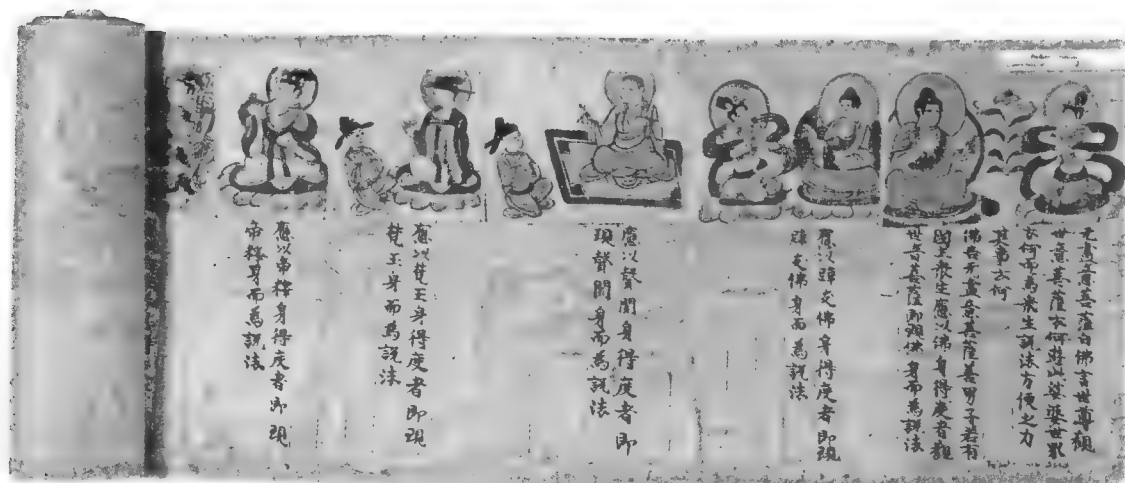 无盡意菩薩白佛言世尊觀
世音菩薩云何遊此娑婆世界
云何而為衆生説法方便之力
其事云何
佛告无盡意菩薩善男子若有
國土衆生應以佛身得度者觀
世音菩薩即現佛身而為説法
應以辟支佛身得度者即現
辟支佛身而為説法
應以聲聞身得度者即
現聲聞身而為説法
應以梵王身得度者即現
梵王身而為説法
應以帝釋身得度者即現
帝釋身而為説法